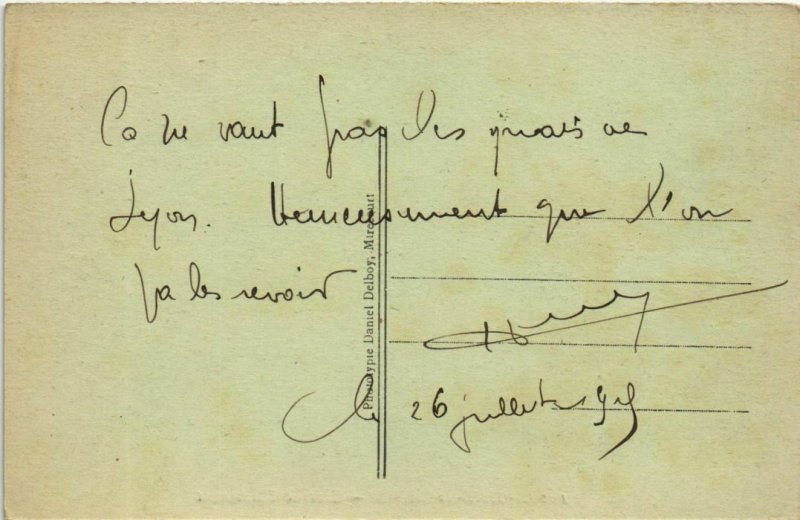 Ça ne vaut pas les quais de
Lyon. Heureusement que l'on
va les revoir
le 26 juillet
Phototypie Daniel Delboy, Mirecourt